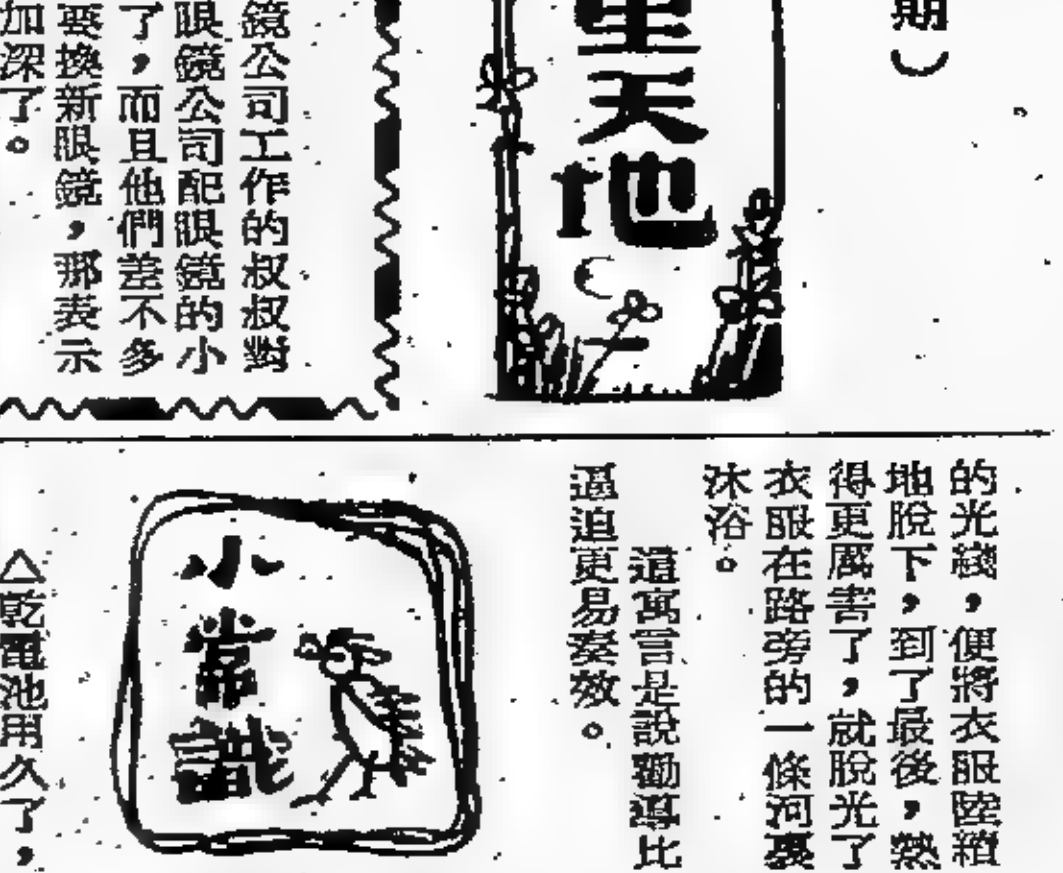 期）
天地
鏡公司工作的叔叔對
眼鏡公司配眼鏡的小
了，而且他們差不多
要換新眼鏡，那表示
加深了。
的光綫，便將衣服陸續
地脫下，到了最後，熱
得更厲害了，就脫光了
衣服在路旁的一條河裏
沐浴。
這寓言是說勸導比
逼迫更易奏效。
小常識
△乾電池用久了，